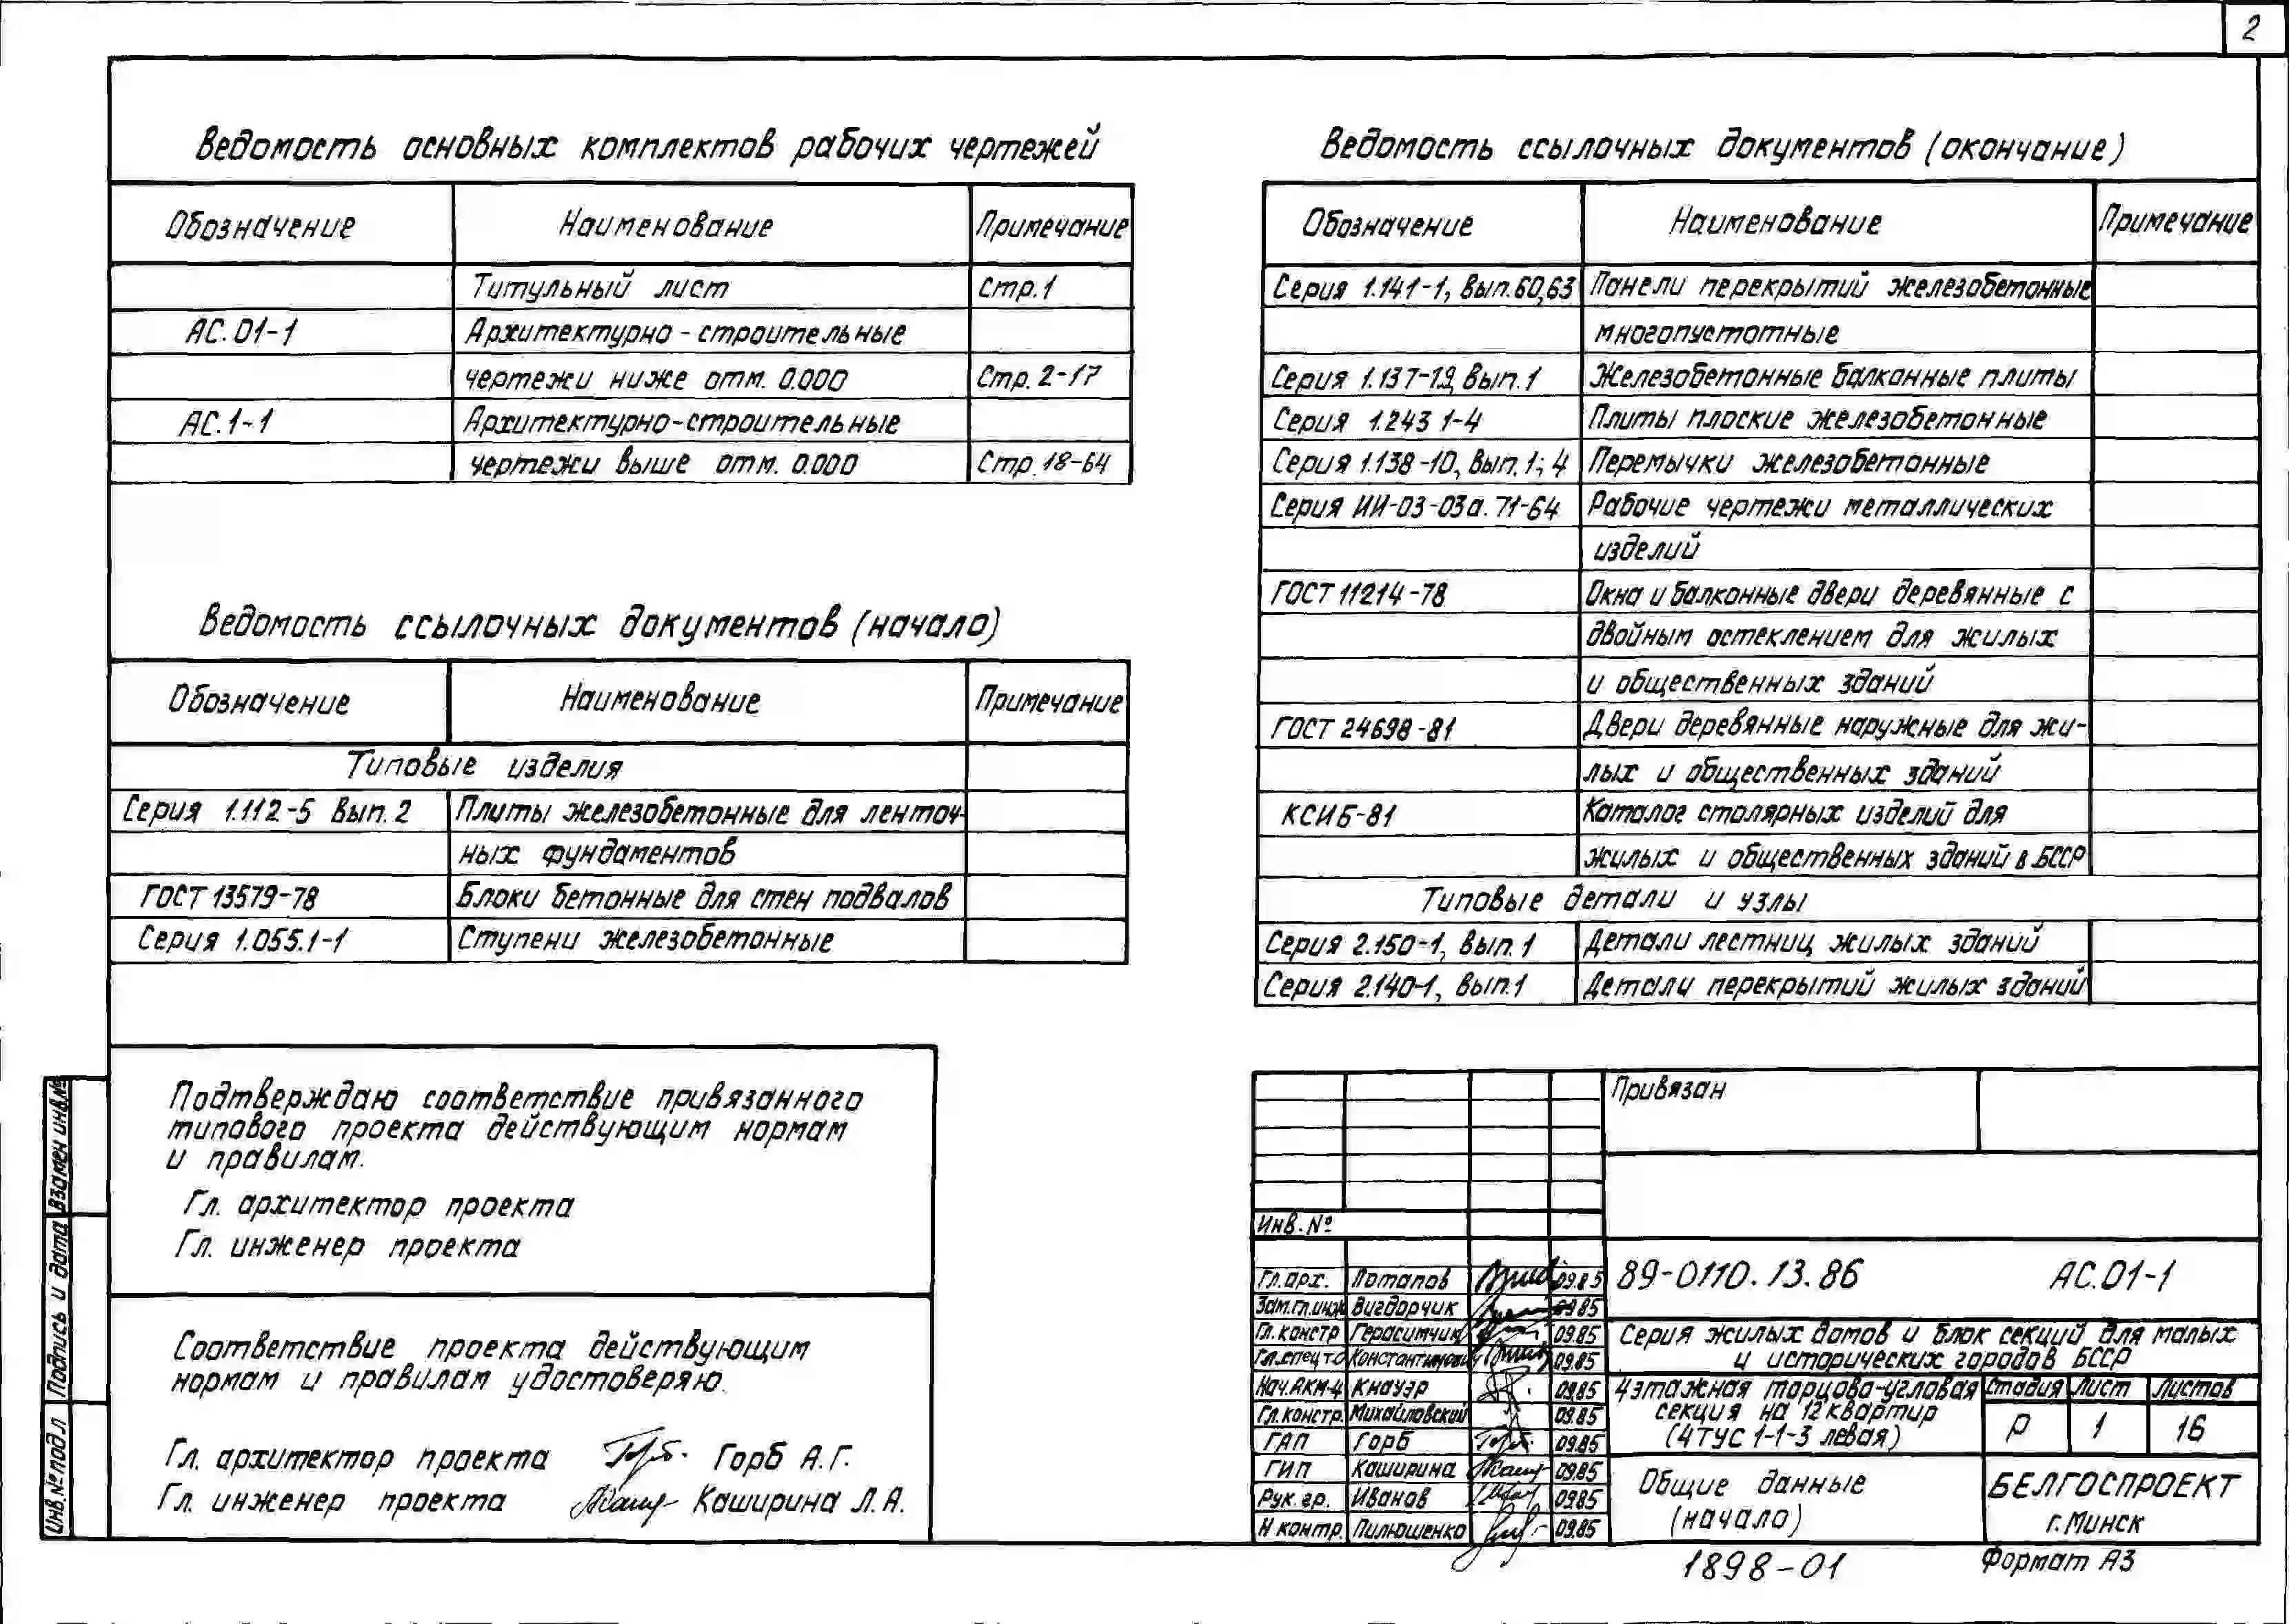 2
Ведомость основных комплектов рабочих чертежей
Обозначение Наименование Примечание
Титульный лист Стр.1
АС.01-1 Архитектурно-строительные
чертежи ниже отм. 0.000 Стр.2-17
АС.1-1 Архитектурно-строительные
чертежи выше отм. 0.000 Стр.18-64
Ведомость ссылочных документов (начало)
Обозначение Наименование Примечание
Типовые изделия
Серия 1.112-5 Вып.2 Плиты железобетонные для ленточ-
ных фундаментов
ГОСТ 13579-78 Блоки бетонные для стен подвалов
Серия 1.055.1-1 Ступени железобетонные
Ведомость ссылочных документов (окончание)
Обозначение Наименование Примечание
Серия 1.141-1, Вып.60,63 Панели перекрытий железобетонные
многопустотные
Серия 1.137-1.9, вып.1 Железобетонные балконные плиты
Серия 1.243 1-4 Плиты плоские железобетонные
Серия 1.138-10, Вып.1; 4 Перемычки железобетонные
Серия ИИ-03-03а.71-64 Рабочие чертежи металлических
изделий
ГОСТ 11214-78 Окна и балконные двери деревянные с
двойным остеклением для жилых
и общественных зданий
ГОСТ 24698-81 Двери деревянные наружные для жи-
лых и общественных зданий
КСИБ-81 Каталог столярных изделий для
жилых и общественных зданий в БССР
Типовые детали и узлы
Серия 2.150-1, вып.1 Детали лестниц жилых зданий
Серия 2.140-1, вып.1 Детали перекрытий жилых зданий
Подтверждаю соответствие привязанного
типового проекта действующим нормам
и правилам.
Гл. архитектор проекта
Гл. инженер проекта
Соответствие проекта действующим
нормам и правилам удостоверяю.
Гл. архитектор проекта Горб А.Г.
Гл. инженер проекта Каширина Л.А.
Инв.№подл Подпись и дата Взамен инв.№
Привязан
Инв.№
Гл.арх. Потапов 09.85
Зам.гл.инж Вигдорчик 09.85
Гл.констр Герасимчик 09.85
Гл.спец т.о Константинович 09.85
Нач.АКМ-4 Кнауэр 09.85
Гл.констр. Михайловский 09.85
ГАП Горб 09.85
ГИП Каширина 09.85
Рук.гр. Иванов 09.85
Н контр. Пилюшенко 09.85
89-0110.13.86 АС.01-1
Серия жилых домов и блок секций для малых
и исторических городов БССР
4этажная торцово-угловая
секция на 12 квартир
(4ТУС 1-1-3 левая)
Стадия Лист Листов
Р 1 16
Общие данные
(начало)
БЕЛГОСПРОЕКТ
г.Минск
1898-01
Формат А3